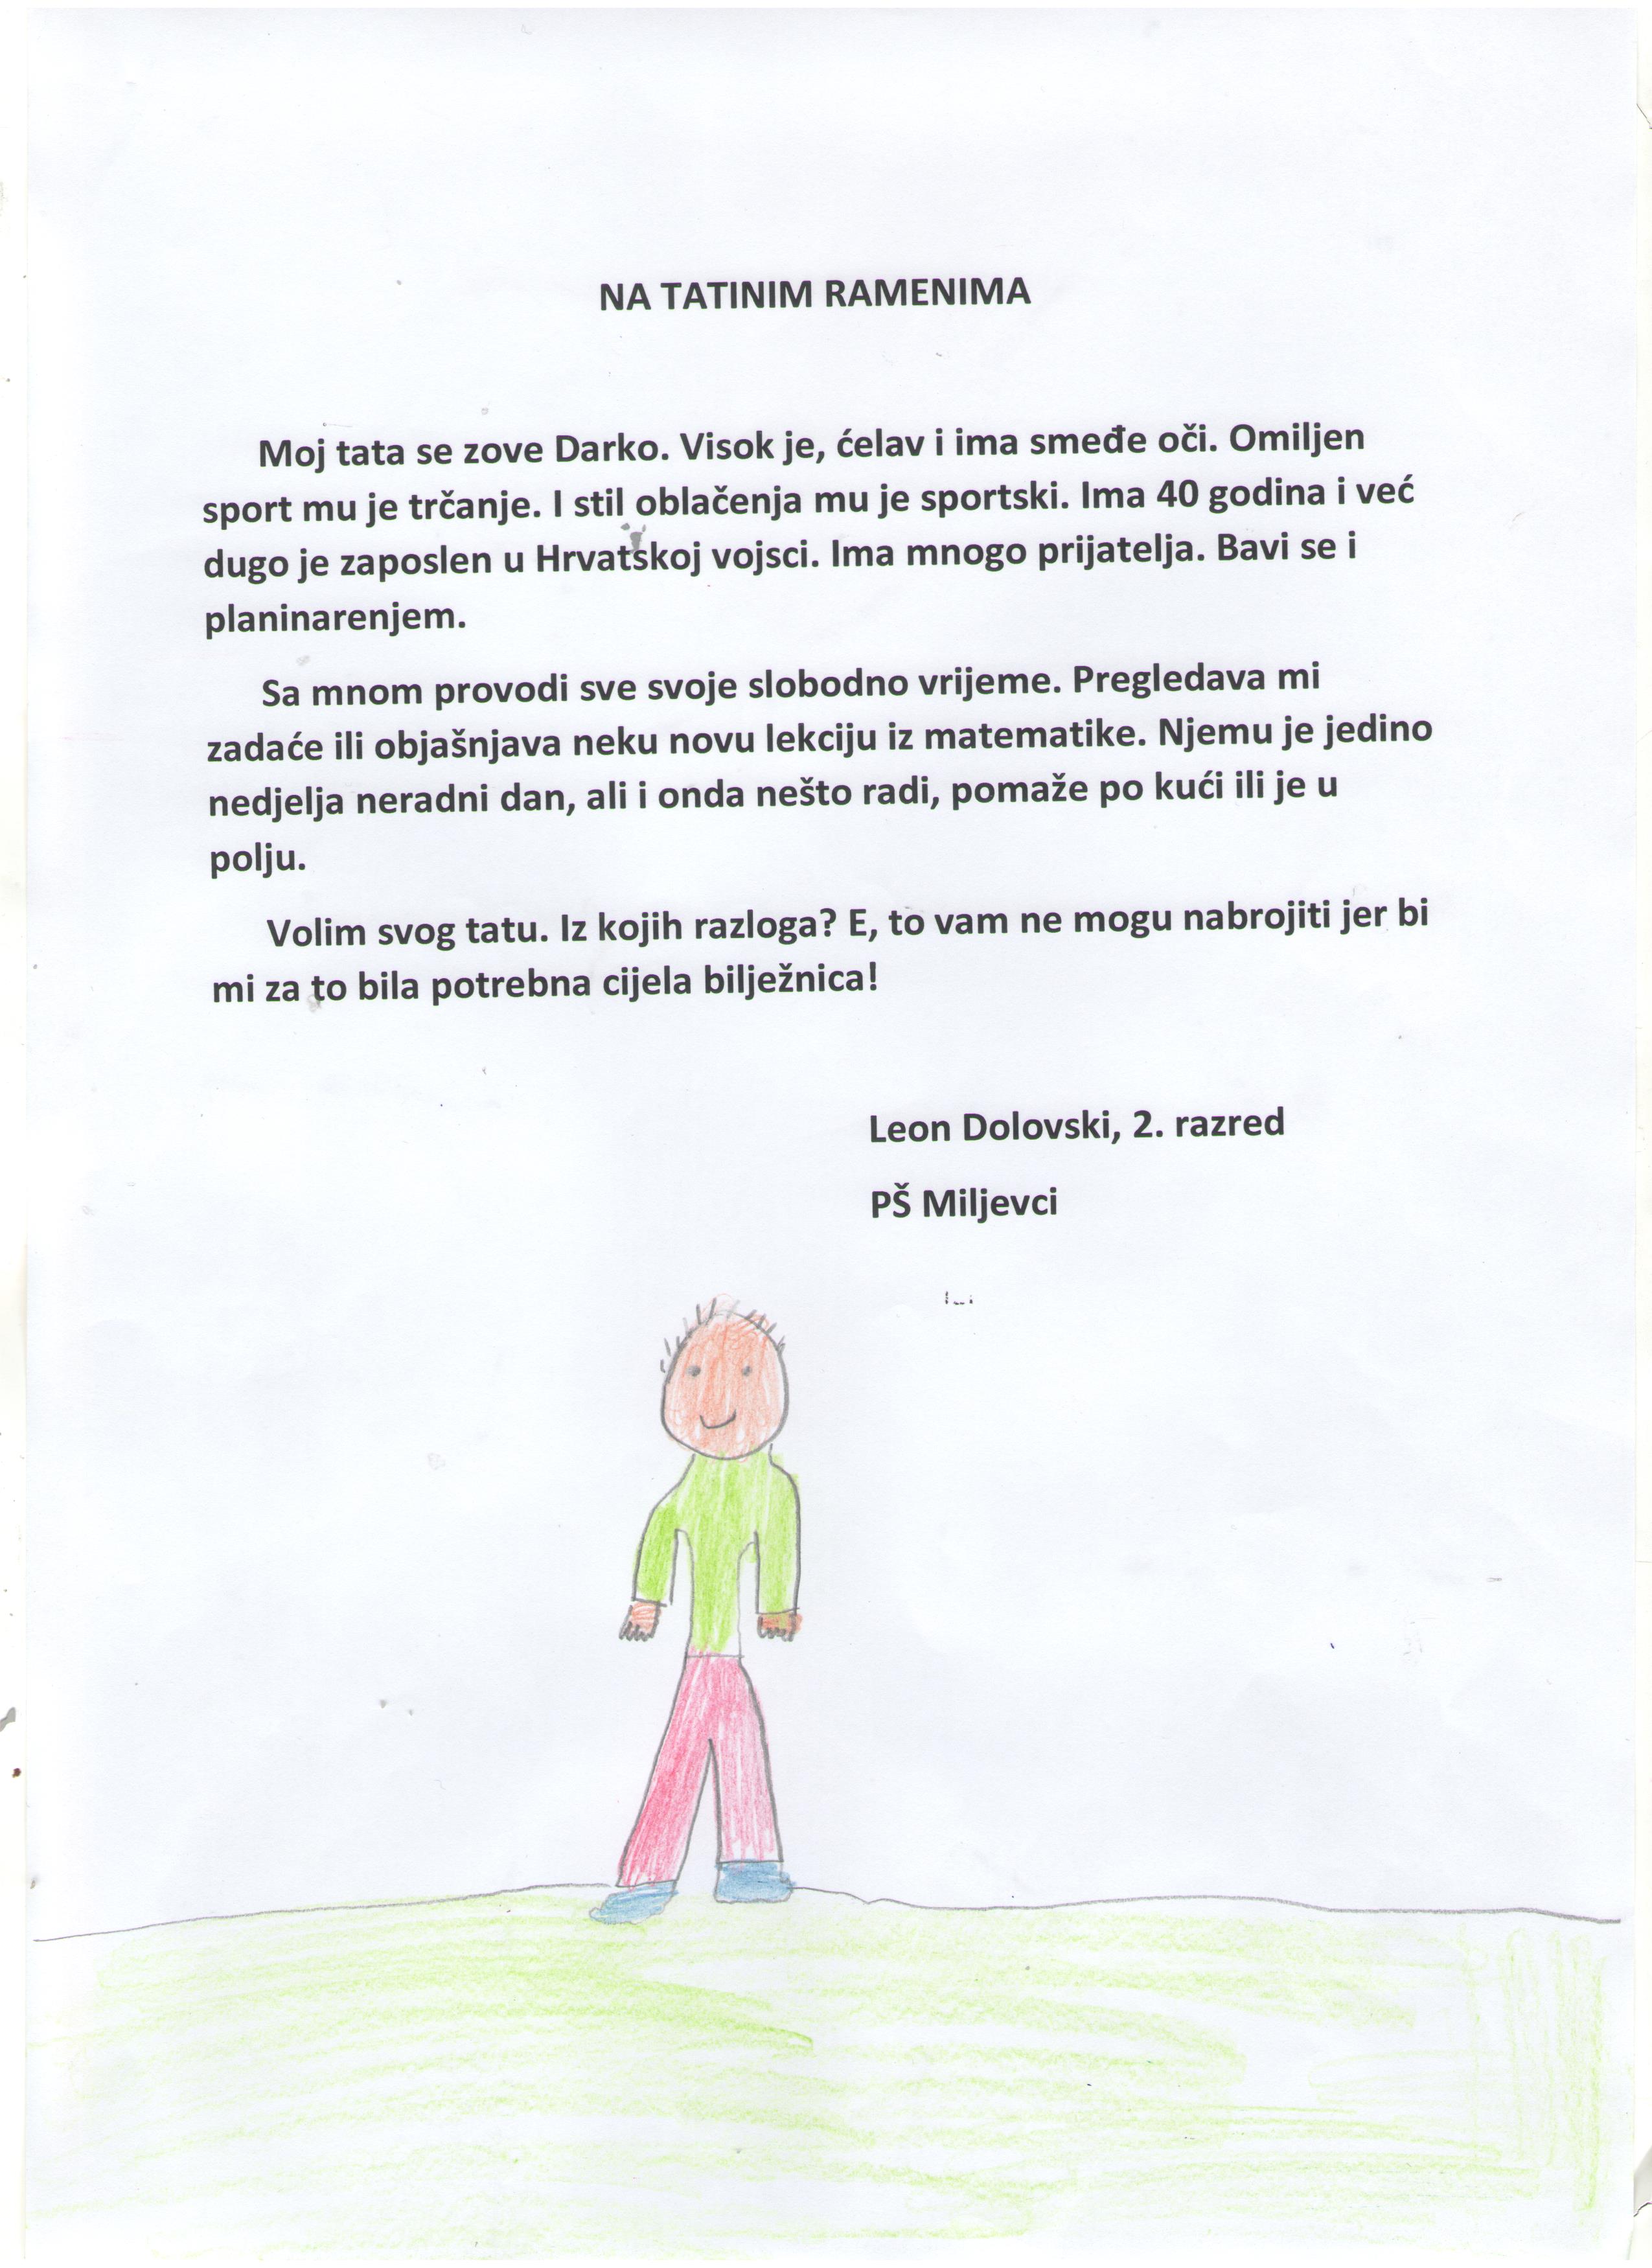 NA TATINIM RAMENIMA
Moj tata se zove Darko. Visok je, ćelav i ima smeđe oči. Omiljen
sport mu je trčanje. I stil oblačenja mu je sportski. Ima 40 godina i već
dugo je zaposlen u Hrvatskoj vojsci. Ima mnogo prijatelja. Bavi se i
planinarenjem.
Sa mnom provodi sve svoje slobodno vrijeme. Pregledava mi
zadaće ili objašnjava neku novu lekciju iz matematike. Njemu je jedino
nedjelja neradni dan, ali i onda nešto radi, pomaže po kući ili je u
polju.
Volim svog tatu. Iz kojih razloga? E, to vam ne mogu nabrojiti jer bi
mi za to bila potrebna cijela bilježnica!
Leon Dolovski, 2. razred
PŠ Miljevci